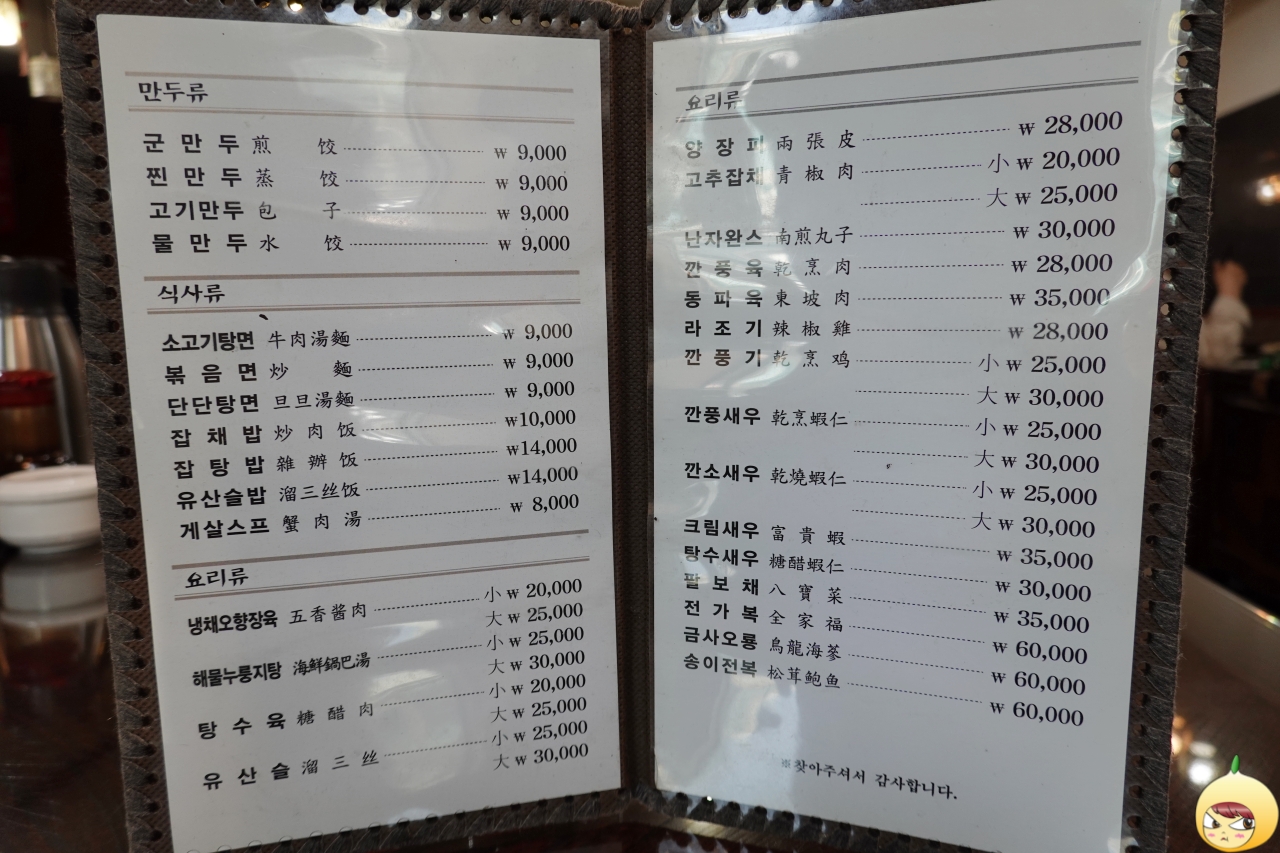 만두류
군만두 煎 饺 ₩ 9,000
찐만두 蒸 饺 ₩ 9,000
고기만두 包 子 ₩ 9,000
물만두 水 饺 ₩ 9,000
식사류
소고기탕면 牛肉湯麵 ₩ 9,000
볶음면 炒 麵 ₩ 9,000
단단탕면 旦旦湯麵 ₩ 9,000
잡채밥 炒肉饭 ₩10,000
잡탕밥 雜辦饭 ₩14,000
유산슬밥 溜三丝饭 ₩14,000
게살스프 蟹肉湯 ₩ 8,000
요리류
냉채오향장육 五香酱肉 小 ₩ 20,000
大 ₩ 25,000
해물누룽지탕 海鮮鍋巴湯 小 ₩ 25,000
大 ₩ 30,000
탕수육 糖醋肉 小 ₩ 20,000
大 ₩ 25,000
유산슬 溜三丝 小 ₩ 25,000
大 ₩ 30,000
요리류
양장피 兩張皮 ₩ 28,000
고추잡채 青椒肉 小 ₩ 20,000
大 ₩ 25,000
난자완스 南煎丸子 ₩ 30,000
깐풍육 乾烹肉 ₩ 28,000
동파육 東坡肉 ₩ 35,000
라조기 辣椒雞 ₩ 28,000
깐풍기 乾烹鸡 小 ₩ 25,000
大 ₩ 30,000
깐풍새우 乾烹蝦仁 小 ₩ 25,000
大 ₩ 30,000
깐소새우 乾燒蝦仁 小 ₩ 25,000
大 ₩ 30,000
크림새우 富貴蝦 ₩ 35,000
탕수새우 糖醋蝦仁 ₩ 30,000
팔보채 八寶菜 ₩ 35,000
전가복 全家福 ₩ 60,000
금사오룡 烏龍海蔘 ₩ 60,000
송이전복 松茸鲍鱼 ₩ 60,000
※찾아주셔서 감사합니다.